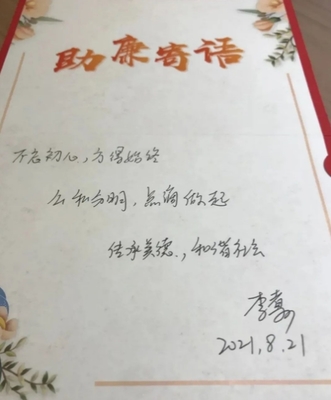 助廉寄语
不忘初心，方得始终
公私分明，点滴做起
传承美德，和谐社会
李
2021.8.21